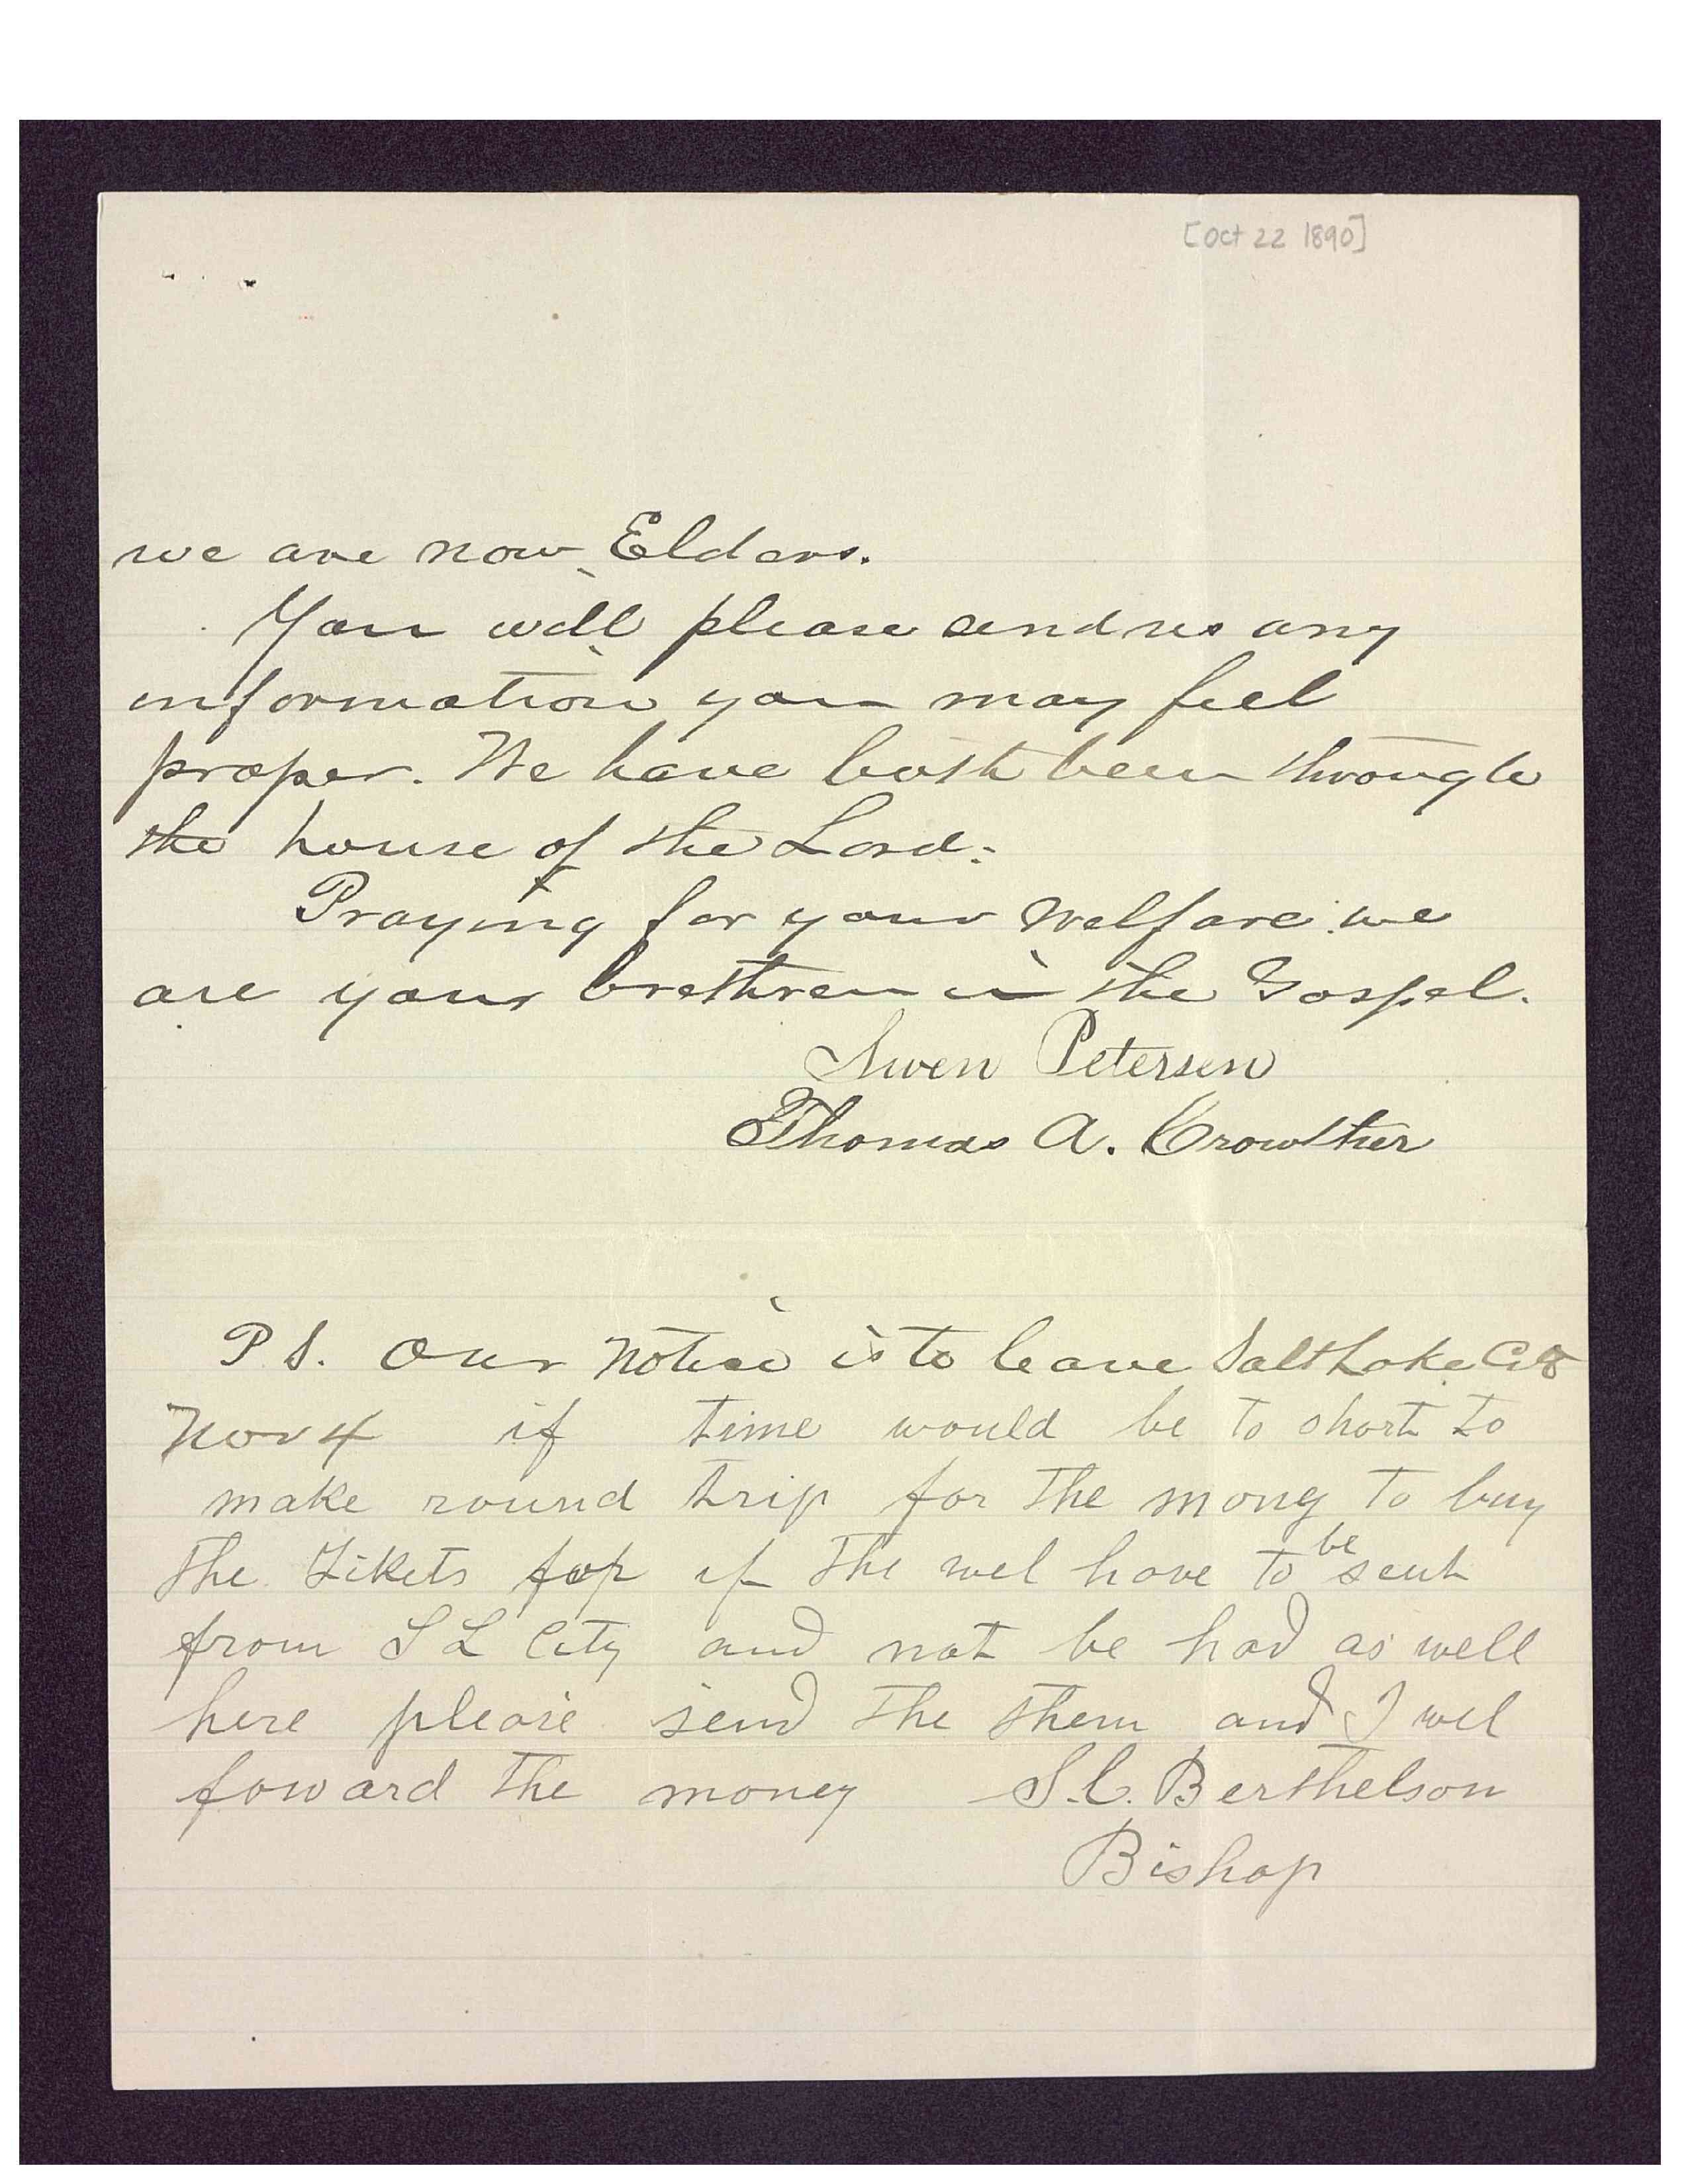 [Oct 22 1890]
we are now Elders.
You will please send us any
information you may feel
proper. We have both been through
the house of the Lord.
Praying for your welfare we
are your brethren in the Gospel.
Swen Petersen
Thomas A. Crowther
P.S. Our Notice is to leave Salt Lake City
Nov 4 if time would be to short to
make round trip for the mony to buy
the Tikets for if the wel have to be sent
from S L City and not be had as well
here please send the them and I wel
foward the money S.C. Berthelson
Bishop